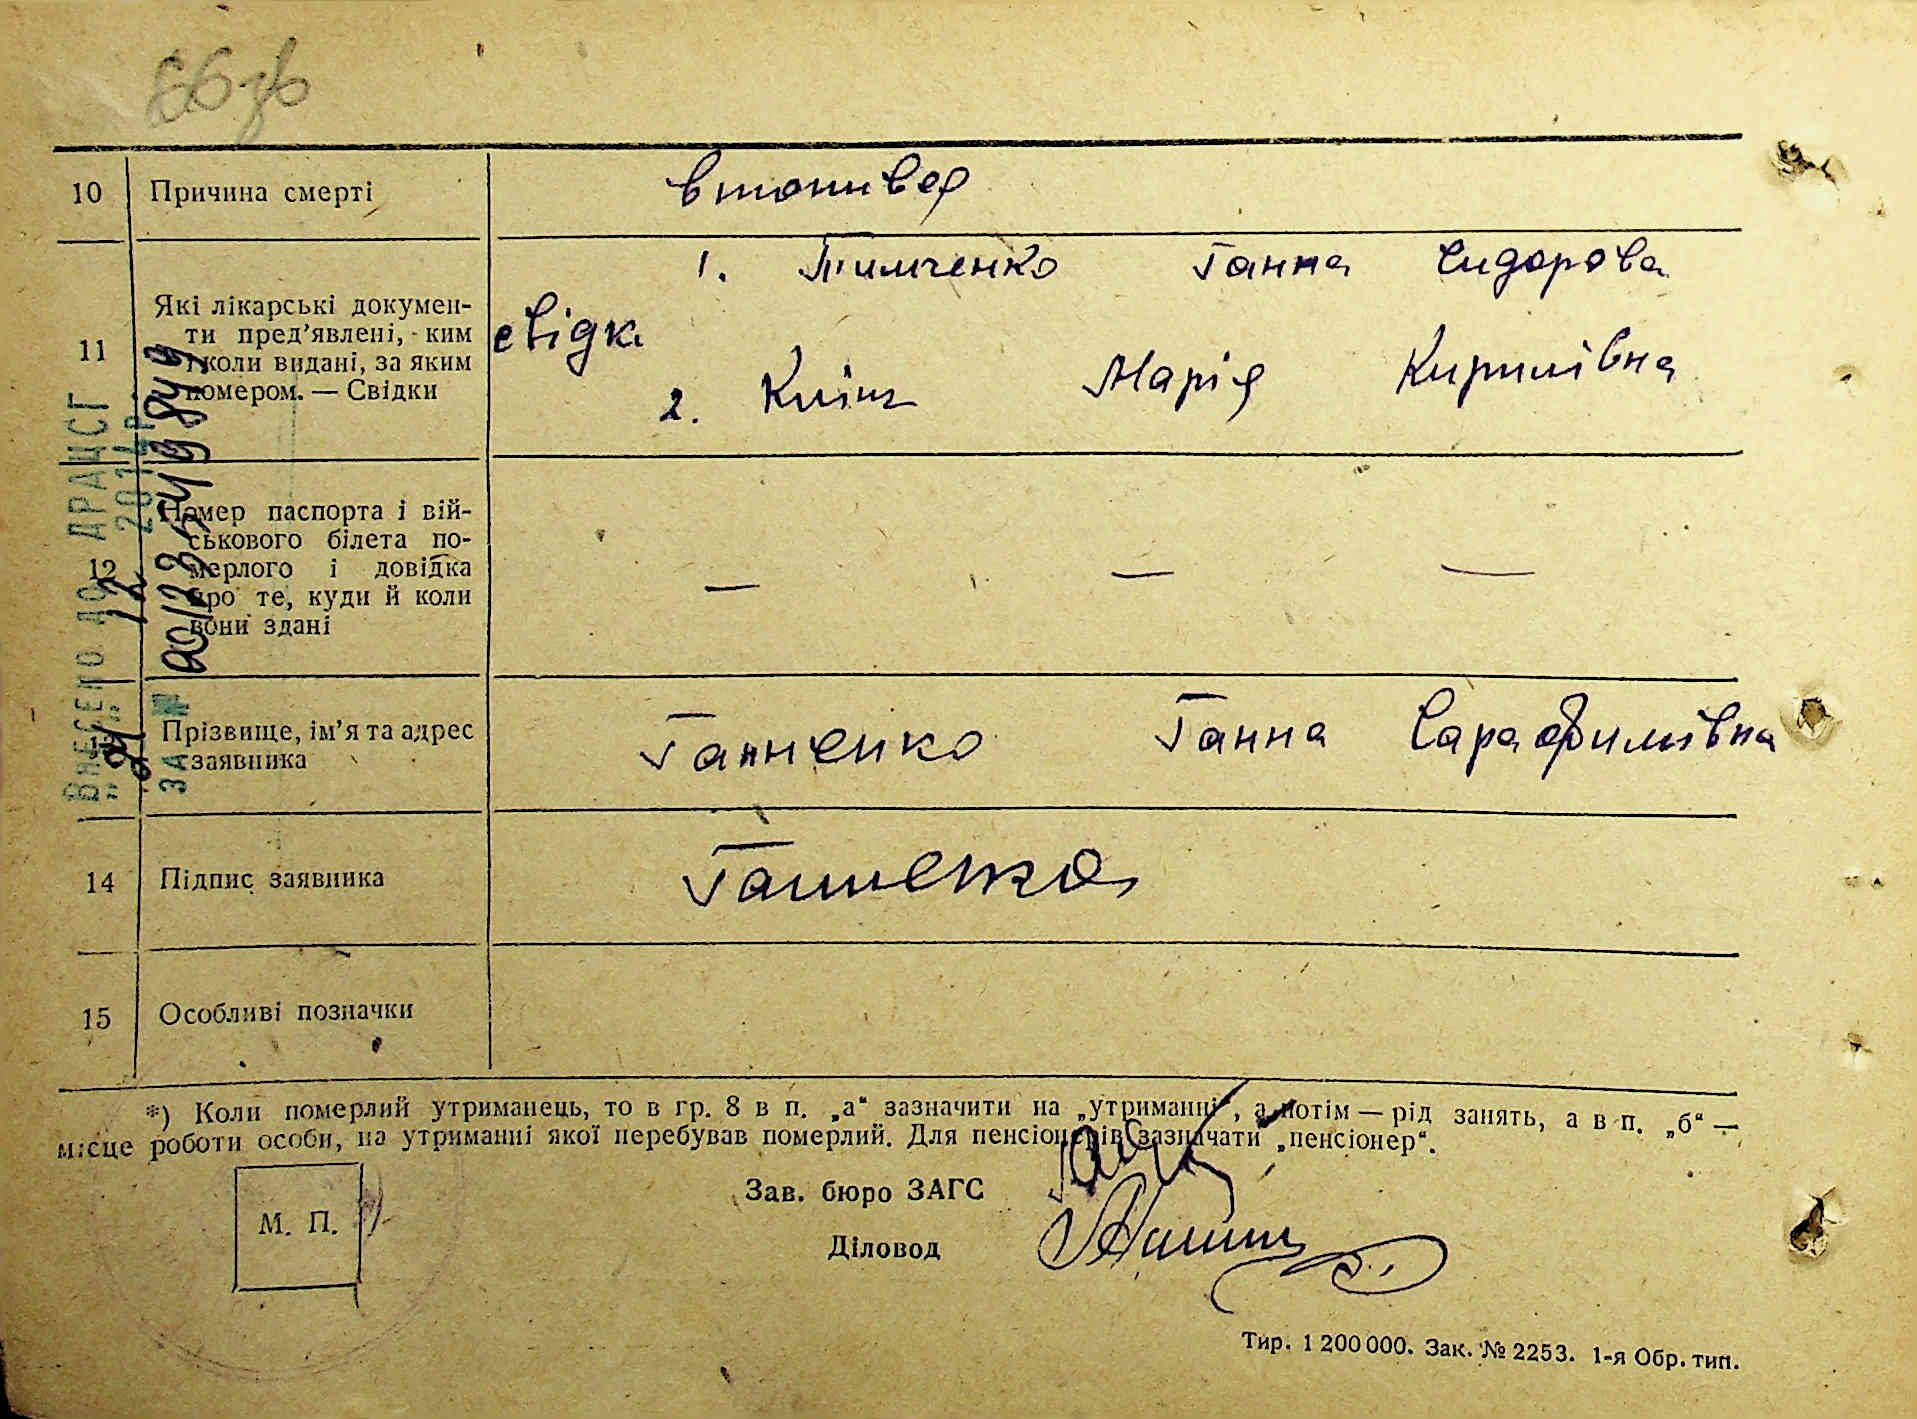 10 Причина смерті втопився
1. Тимченко Ганна Сидорова
11 Які лікарські докумен-
ти пред’явлені, ким
і коли видані, за яким
номером. — Свідки
свідк
2. Марія Кирилівна
12 Номер паспорта і вій-
ськового білета по-
мерлого і довідка
про те, куди й коли
вони здані
— — —
13 Прізвище, ім’я та адрес
заявника
Ганненко Ганна
14 Підпис заявника Ганненко
15 Особливі позначки
*) Коли померлий утриманець, то в гр. 8 в п. „а“ зазначити на „утриманні“, а потім — рід занять, а в п. „б“ —
місце роботи особи, на утриманні якої перебував померлий. Для пенсіонерів зазначати „пенсіонер“.
Зав. бюро ЗАГС
М. П.
Діловод
Тир. 1 200 000. Зак. № 2253. 1-я Обр. тип.
Внесено до ДРАЦСГ
12 201
ЗА №